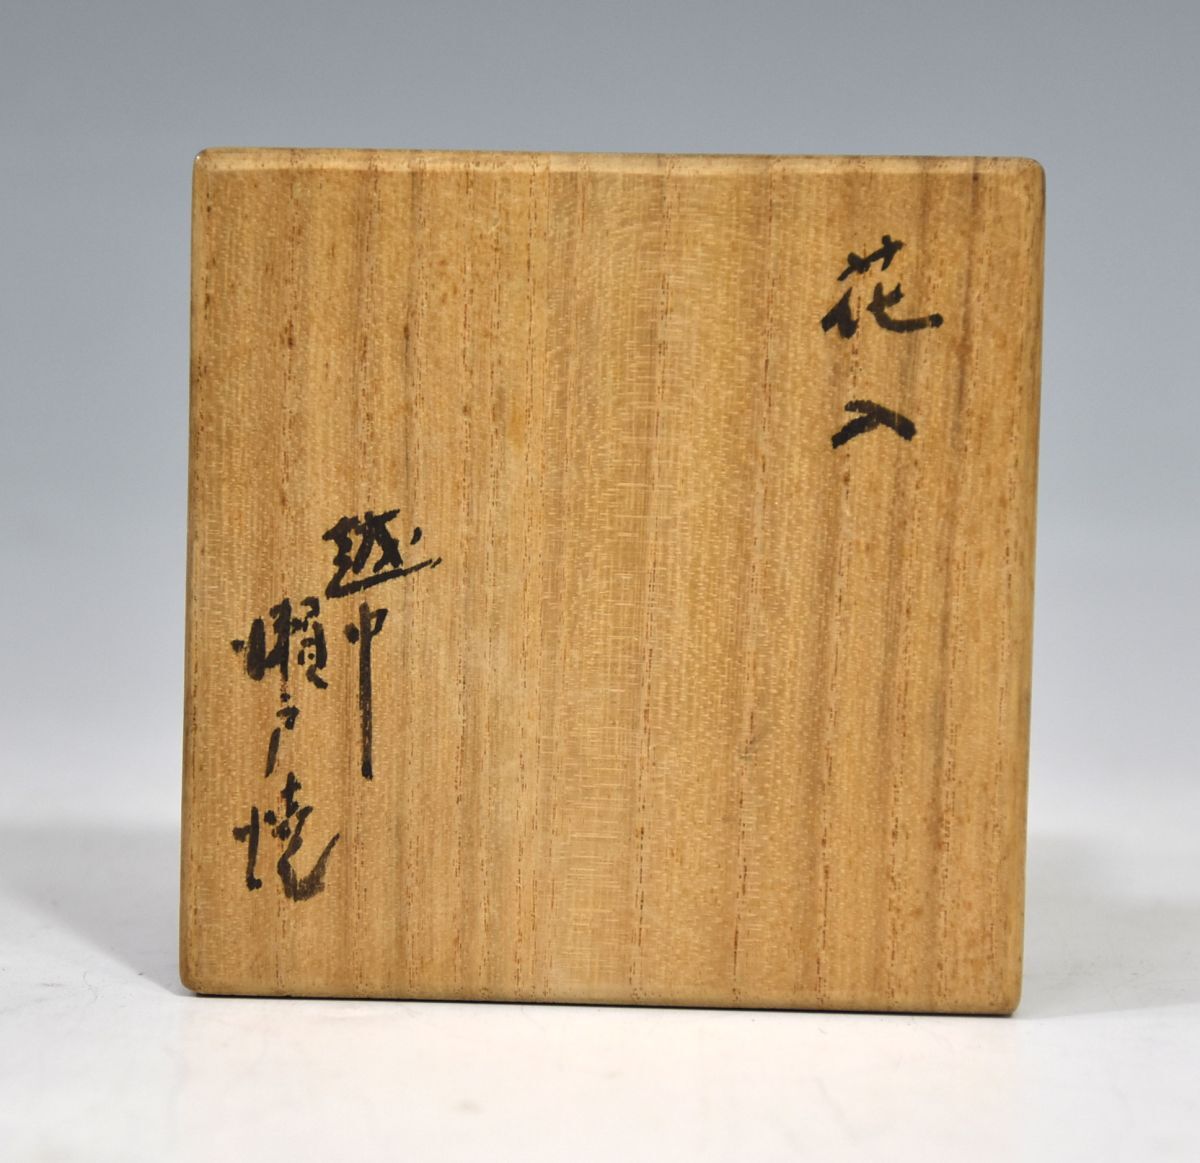 花入
越中
瀬戸焼